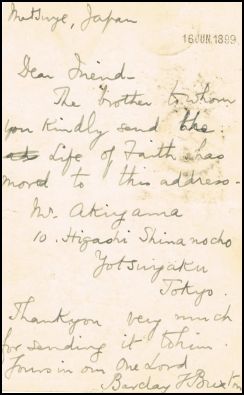 Matsuye, Japan
16 JUN. 1899
Dear Friend-
The brother to whom
you kindly send the
Life of Faith has
moved to this address-
Mr. Akiyama
10. Higashi Shinanocho
Yotsuyaku
Tokyo.
Thankyou very much
for sending it to him.
Yours in our One Lord
Barclay F Buxton